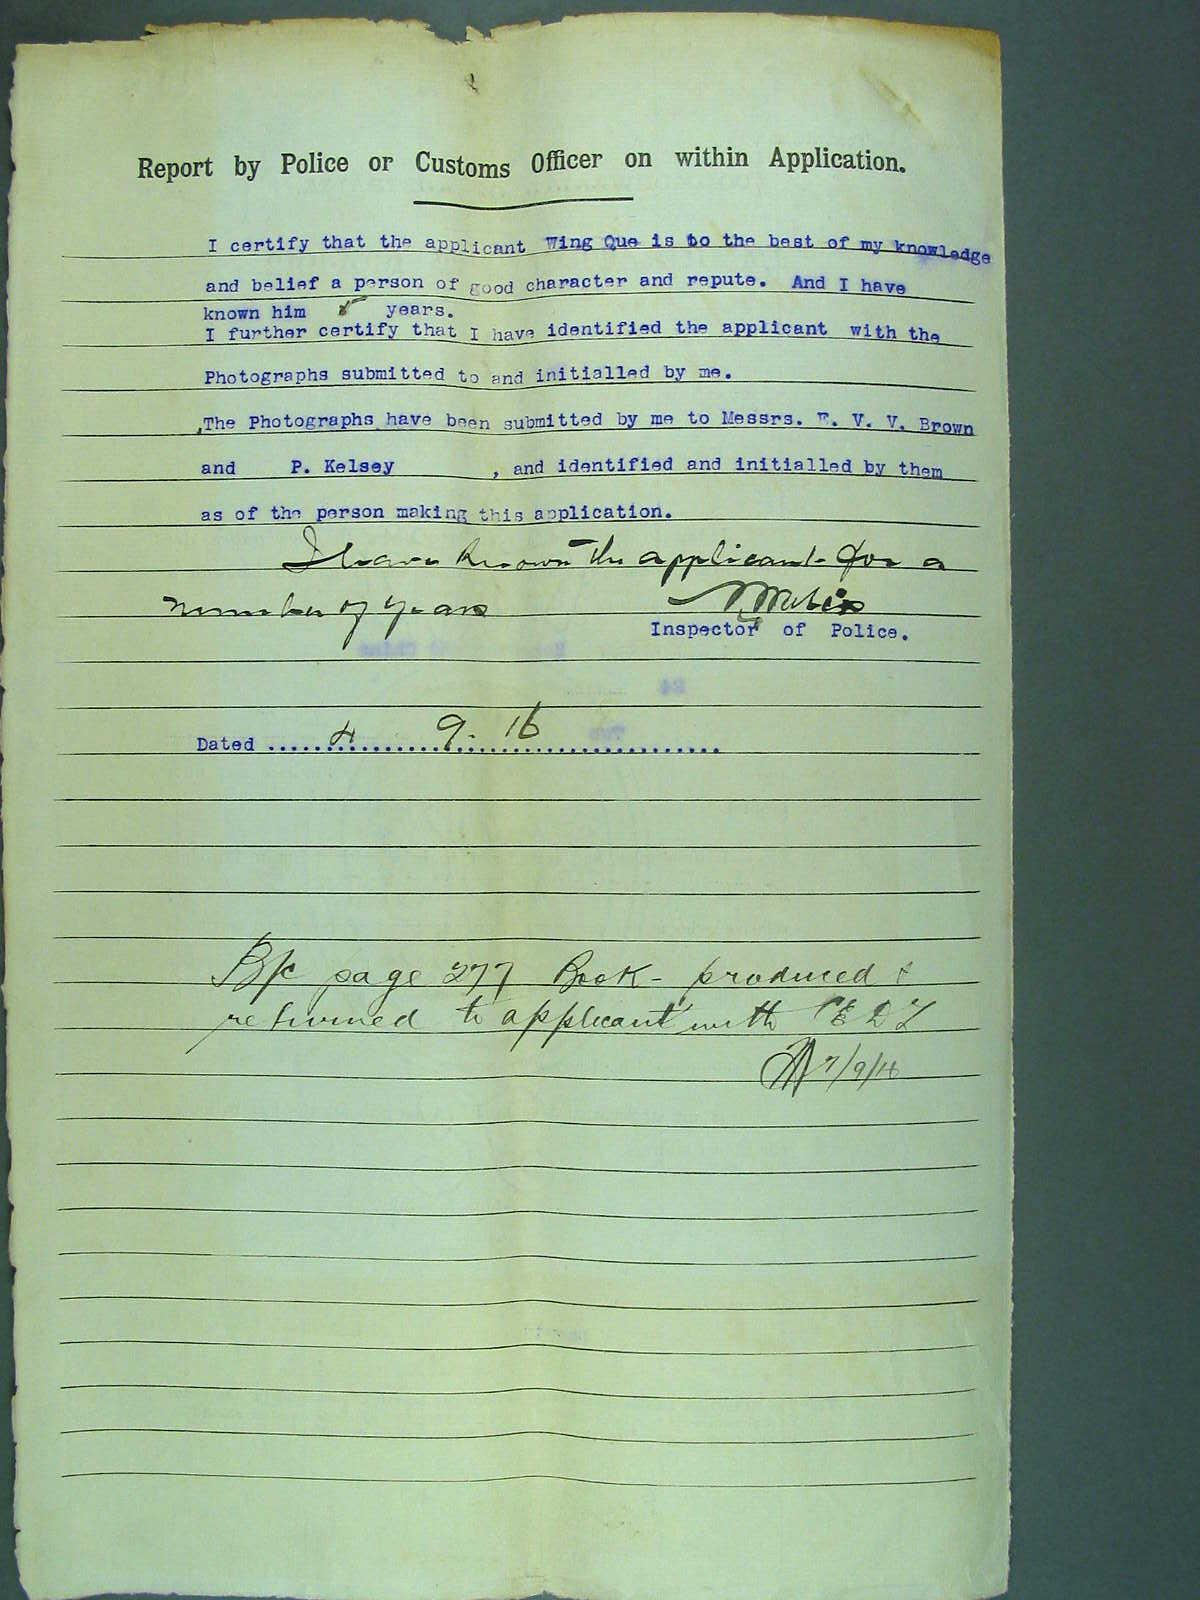 Report by Police or Customs Officer on within Application.
I certify that the applicant Wing Que is to the best of my knowledge
and belief a person of good character and repute. And I have
known him years.
I further certify that I have identified the applicant with the
Photographs submitted to and initialled by me.
The Photographs have been submitted by me to Messrs. E. V. V. Brown
and P. Kelsey , and identified and initialled by them
as of the person making this application.
I have known the applicant for a
number of years
Inspector of Police.
Dated ..... 4 ..... 9. 16 .....
B/c page 277 Book - produced &
returned to applicant with CEDT
7/9/16